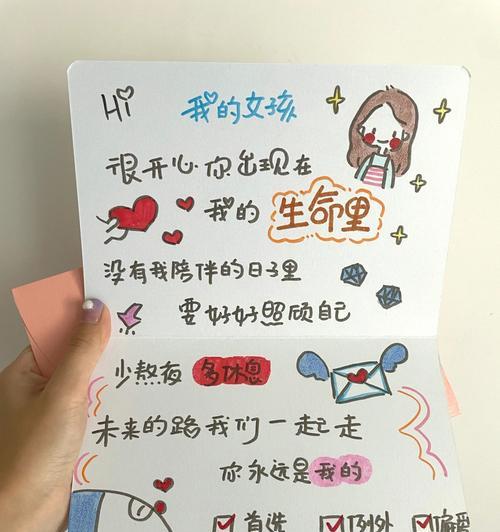 Hi 我的女孩
很开心你出现在
我的 生命里
没有我陪伴的日子里
要好好照顾自己
少熬夜 多休息
未来的路我们一起走
你永远是我的
首选 例外 偏爱